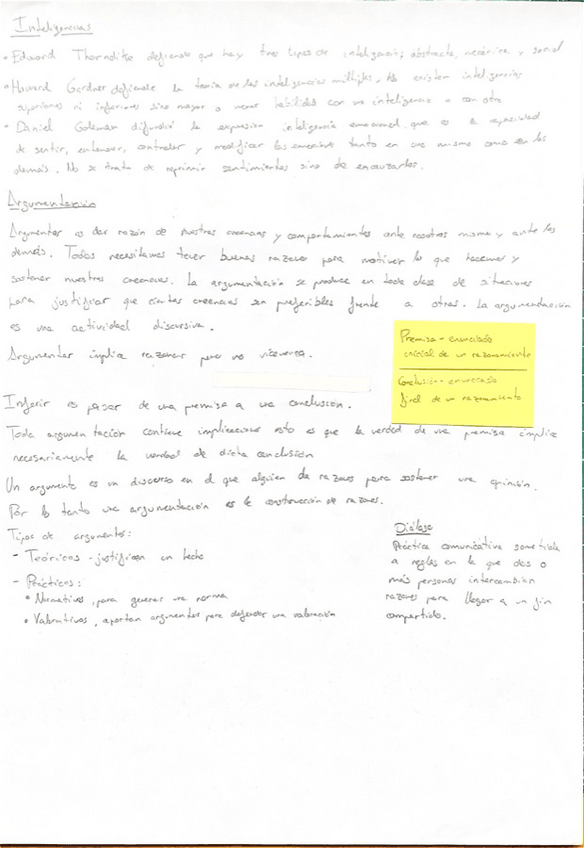 Inteligencias
• Edward Thorndike defiende que hay tres tipos de inteligencia; abstracta, mecánica y social
• Howard Gardner defiende la teoría de las inteligencias múltiples. No existen inteligencias
superiores ni inferiores sino mayor o menor habilidad con una inteligencia o con otra
• Daniel Goleman difundió la expresión inteligencia emocional que es la capacidad
de sentir, entender, controlar y modificar las emociones tanto en uno mismo como en los
demás. No se trata de reprimir sentimientos sino de encauzarlos.
Argumentación
Argumentar es dar razón de nuestras creencias y comportamientos ante nosotros mismos y ante los
demás. Todos necesitamos tener buenas razones para motivar lo que hacemos y
sostener nuestras creencias. La argumentación se produce en toda clase de situaciones
para justificar que ciertas creencias son preferibles frente a otras. La argumentación
es una actividad discursiva.
Argumentar implica razonar pero no viceversa.
Premisa - enunciado
inicial de un razonamiento
Conclusión - enunciado
final de un razonamiento
Inferir es pasar de una premisa a una conclusión.
Toda argumentación contiene implicaciones esto es que la verdad de una premisa implica
necesariamente la verdad de dicha conclusión
Un argumento es un discurso en el que alguien da razones para sostener una opinión.
Por lo tanto una argumentación es la construcción de razones.
Tipos de argumentos:
- Teóricos - justifican un hecho
- Prácticos:
• Normativos, para generar una norma
• Valorativos, aportan argumentos para defender una valoración
Diálogo
Práctica comunicativa sometida
a reglas en la que dos o
más personas intercambian
razones para llegar a un fin
compartido.